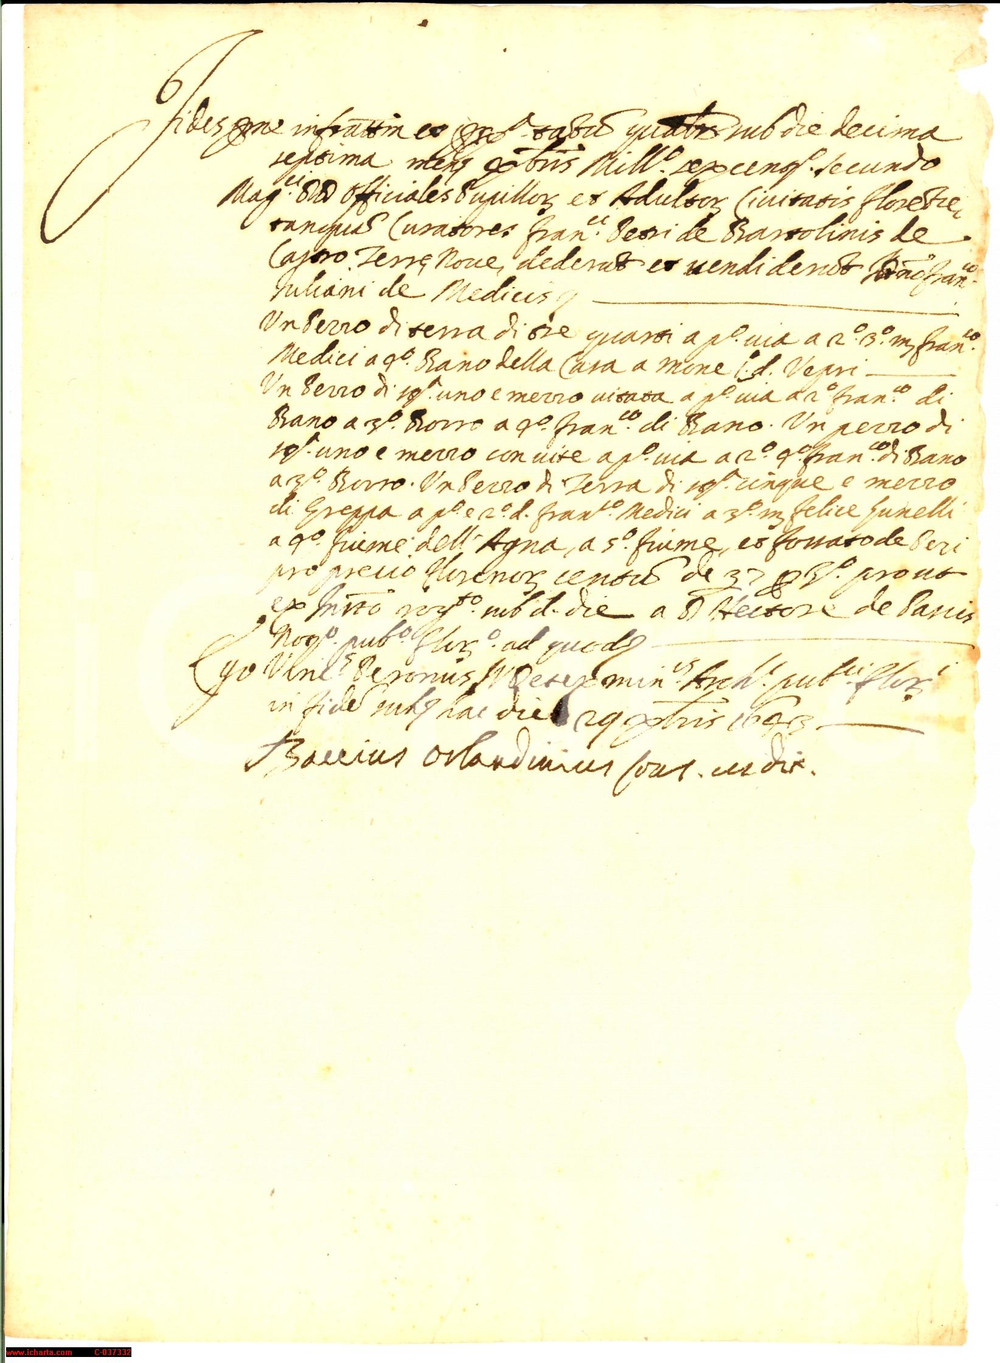 Fides per me infrattum et qualiter sub die decima
septima mens xbris Mill.o sexceng.o secundo
Mag.ci DD Officiales Pupillor, et Adultor, Civitatis Florentie,
tanquã Curatores Fran.ci Petri de Bartolinis de
Castro Terre, Nove, dederũt et vendiderũt Fran.co
Iuliani de Medicis
Un Pezzo di terra di tre quarti a p.o via a 2.o 3.o Fran.co
Medici a 4.o Bano della Casa a mone Vepri
Un Pezzo di uno e mezzo vitata a p.o via a 2.o Fran.co di
Bano a 3.o Borro a 4.o Fran.co di Bano. Un pezzo di
uno e mezzo con vite a p.o via a 2.o 4.o Fran.co di Bano
a 3.o Borro. Un Pezzo di Terra di cinque e mezzo
di Greppa a p.o e 2.o d. Fran.co Medici a 3.o m Felice Gunelli
a 4.o fiume dell' Agna, a 5.o fiume, et fossato de Peri
pro precio florenor, centũ de prout
ex Instõ rog.to sub d. die a D Hectore de Pacis
Not.o pub.o Flor.o ad quod
Ego Vinc.s Peronus min.us Arch.i pub.ci Flor.i
in fidẽ subs hac die 29 xbris 1643
Baccius Orlandinius Cons. ut dix.
www.icharta.com C-037332